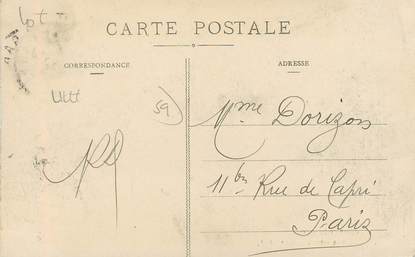 Lot -
CARTE POSTALE
CORRESPONDANCE
ADRESSE
59
Mme Dorizon
11 bis Rue de Capri
Paris